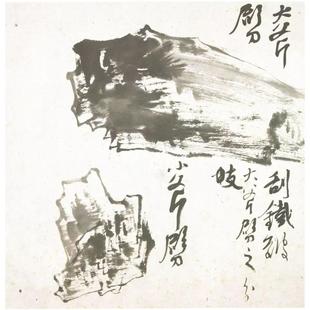 大斧
劈
刮鐵皴
大斧劈之分
小斧劈